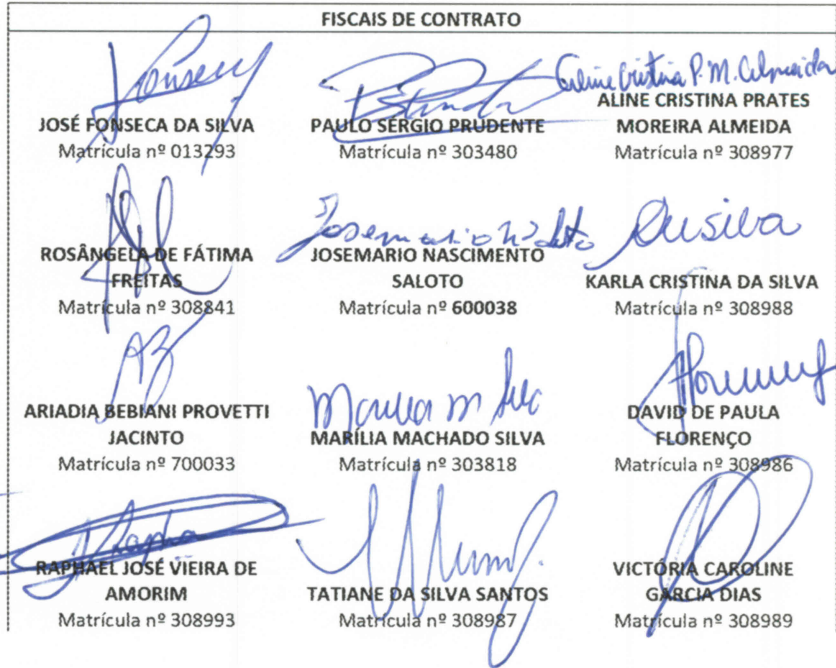 FISCAIS DE CONTRATO
JOSÉ FONSECA DA SILVA
Matrícula nº 013293
PAULO SÉRGIO PRUDENTE
Matrícula nº 303480
Aline Cristina P. M. Almeida
ALINE CRISTINA PRATES
MOREIRA ALMEIDA
Matrícula nº 308977
ROSÂNGELA DE FÁTIMA
FREITAS
Matrícula nº 308841
JOSEMARIO NASCIMENTO
SALOTO
Matrícula nº 600038
KARLA CRISTINA DA SILVA
Matrícula nº 308988
ARIADIA BEBIANI PROVETTI
JACINTO
Matrícula nº 700033
MARÍLIA MACHADO SILVA
Matrícula nº 303818
DAVID DE PAULA
FLORENÇO
Matrícula nº 308986
RAPHAEL JOSÉ VIEIRA DE
AMORIM
Matrícula nº 308993
TATIANE DA SILVA SANTOS
Matrícula nº 308987
VICTÓRIA CAROLINE
GARCIA DIAS
Matrícula nº 308989